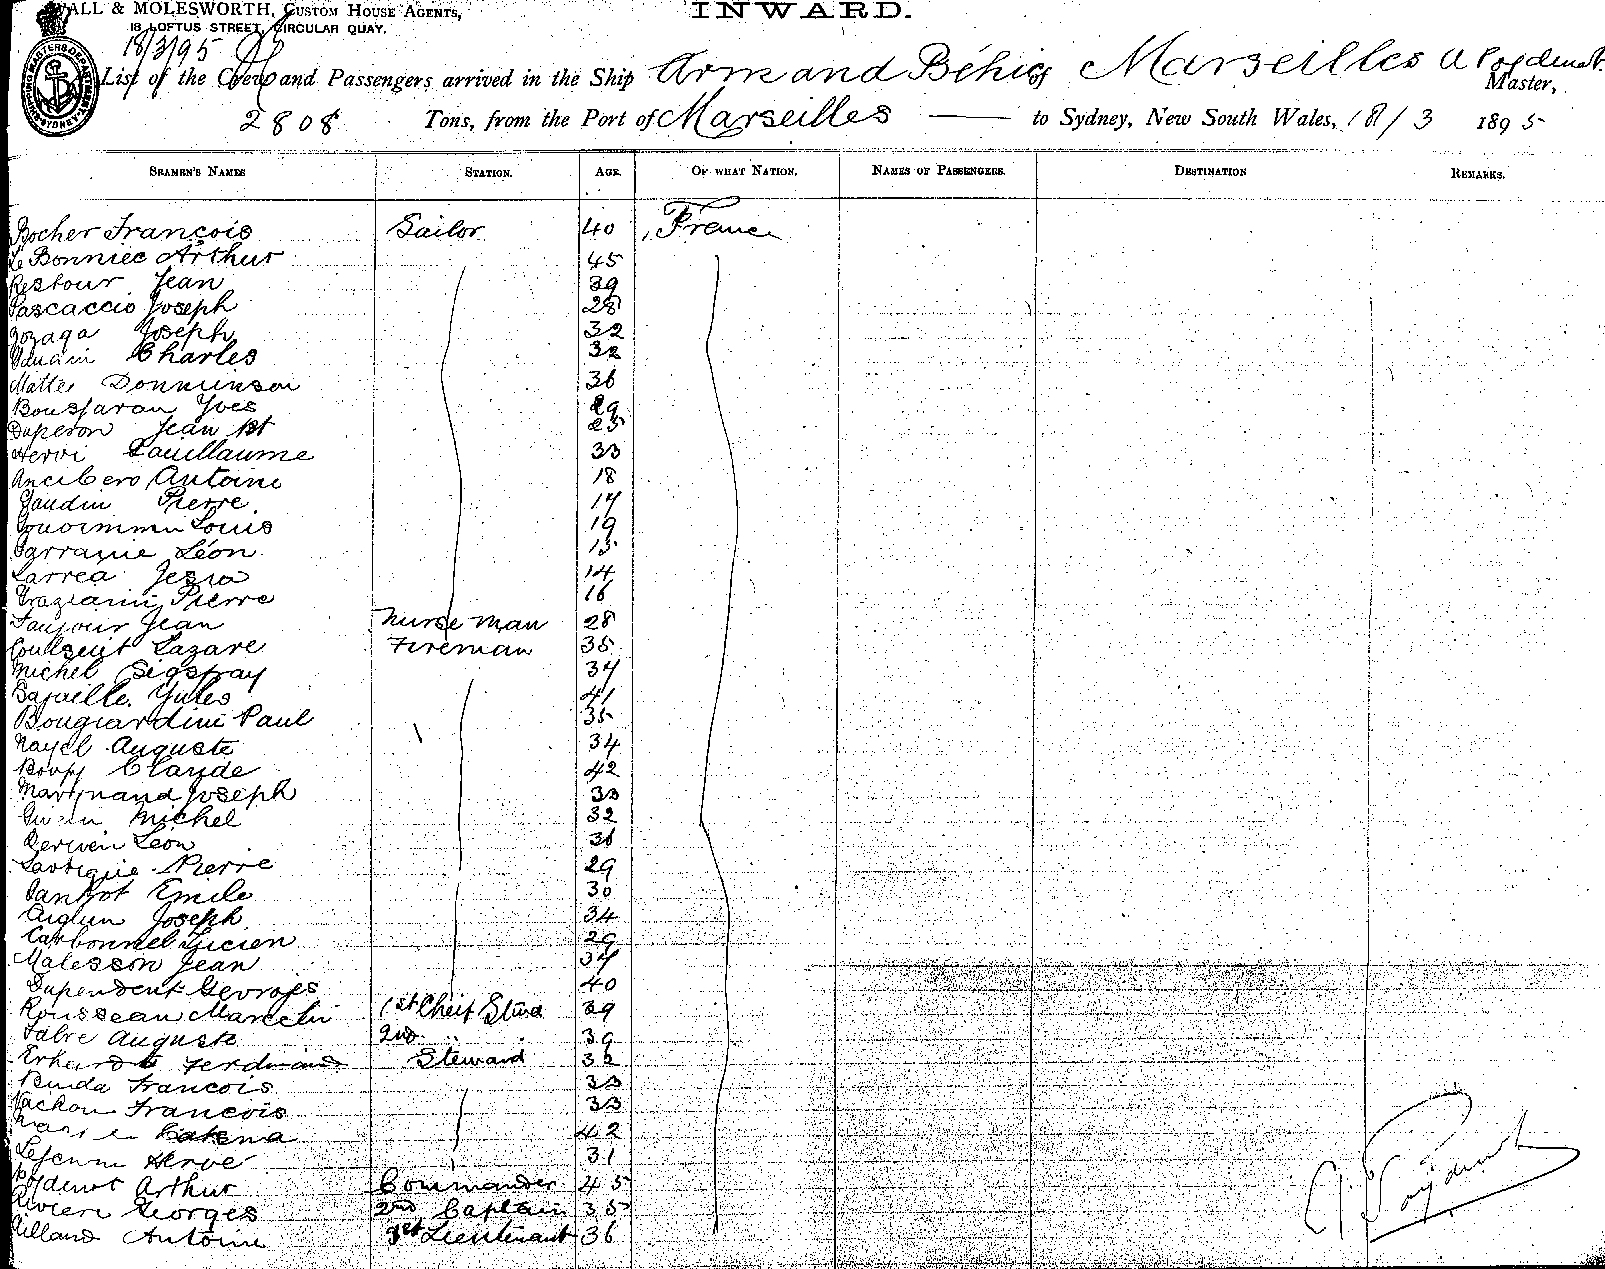 WALL & MOLESWORTH, CUSTOM HOUSE AGENTS,
18 LOFTUS STREET, CIRCULAR QUAY.
INWARD.
18/3/95
List of the Crew and Passengers arrived in the Ship Armand Béhic of Marseilles A Poydenot Master,
2808 Tons, from the Port of Marseilles to Sydney, New South Wales, 18/3 1895
SEAMEN'S NAMES STATION. AGE. OF WHAT NATION. NAMES OF PASSENGERS. DESTINATION REMARKS.
Bocher François Sailor 40 France
Le Bonniec Arthur 45
Restour Jean 39
Pascaccio Joseph 28
Zozaga Joseph 32
Charles 32
Matte 36
Yves 29
Duperon Jean Bt 25
Hervi 33
Ancibero Antoine 18
Gaudin Pierre 17
Louis 19
Larraine Léon 15
Larrea 14
Grazianni Pierre 16
Jean Nurse man 28
Lazare Fireman 35
Michel 34
Bataille Jules 41
Bongiardini Paul 35
Nayel Auguste 34
Claude 42
Martinand Joseph 33
Michel 32
Derwen Leon 36
Lartigue Pierre 29
Emile 30
Aiglun Joseph 34
Carbonnel Lucien 29
Malesson Jean 34
Dupendent Georges 40
Rousseau Marcelin 1st Cheif Stwd 39
Fabre Auguste 2nd 39
Erhardt Ferdinand Steward 32
Francois 33
Vachon Francois 33
42
Lejeune Herve 31
Poydenot Arthur Commander 45
Riviere Georges 2nd Captain 35
Antoine 1st Lieutenant 36
A Poydenot